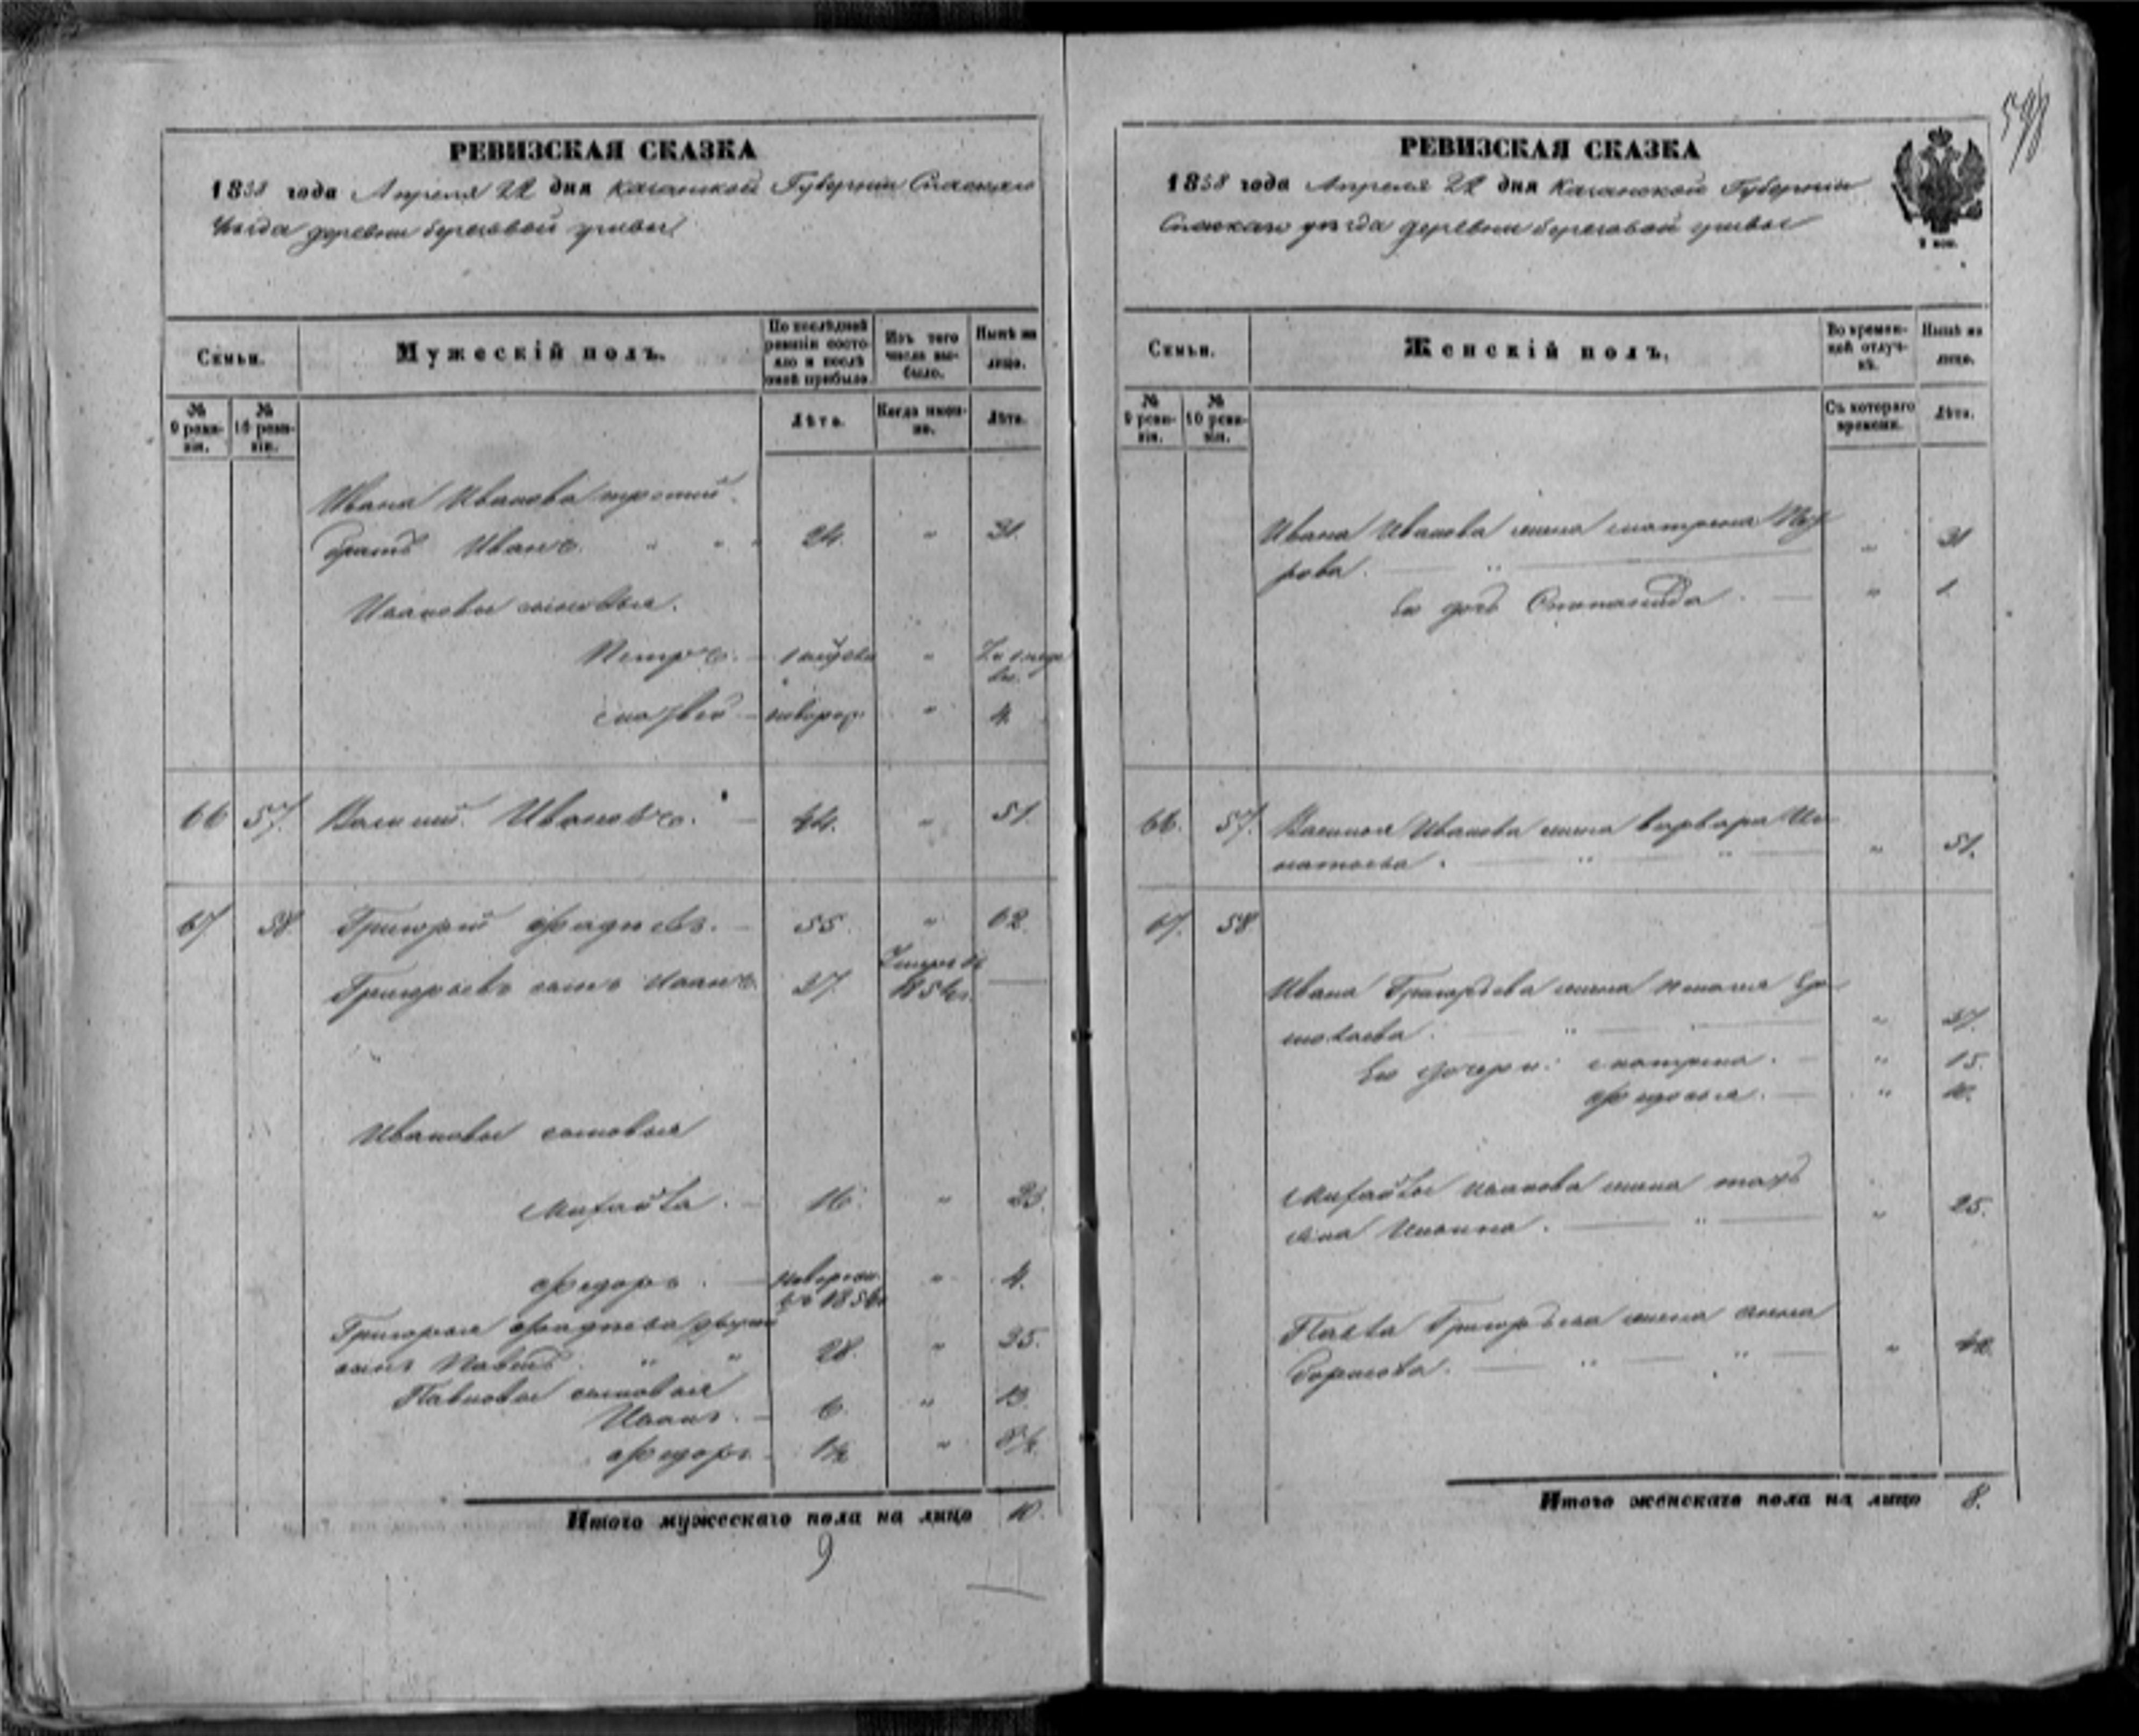 598
РЕВИЗСКАЯ СКАЗКА
1858 года Апреля 22 дня Казанской Губернии Спаскаго
Уезда деревни береговой
Семьи.
Мужескій полъ.
По послѣдней ревизіи состояло и послѣ оной прибыло.
Изъ того числа выбыло.
Нынѣ на лицо.
№ 9 ревизіи.
№ 10 ревизіи.
Лѣта.
Когда именно.
Лѣта.
Ивана Иванова третий
братъ Иванъ. " " " 24. " 31.
Ивановы сыновья.
Петръ. " 
Матвей новорож. " 4.
66 57. Василий Ивановъ. 44. " 51.
67 58. Григорий Фадѣевъ. 55. " 62.
Григорьевъ сынъ Иванъ. 37 Умеръ въ 1854г. —
Ивановы сыновья
Михайла. 16. " 23.
Федоръ. новорожд. въ 1854 " 4.
Григорья Фадѣева другой
сынъ Павелъ. " " 28. " 35.
Павловы сыновья
Иванъ. 6. " 13.
Федоръ. 1/2 "
Итого мужескаго пола на лицо 10.
9
РЕВИЗСКАЯ СКАЗКА
1858 года Апреля 22 дня Казанской Губернии
Спаскаго уезда деревни береговой
2 коп.
Семьи.
Женскій полъ.
Во временной отлучкѣ.
Нынѣ на лицо.
№ 9 ревизіи.
№ 10 ревизіи.
Съ котораго времени.
Лѣта.
Ивана Иванова жена Матрена
" 31
Ее дочь Степанида. " 1.
66. 57. Василья Иванова жена Варвара Иг-
натьева. " " " 51.
67. 58
Ивана Григорьева жена Ер-
молаева. " " 37.
Ее дочери: Матрена. " 15.
Федосья. " 10.
Михайлы Иванова жена
" " 25.
Павла Григорьева жена Анна
Борисова. " " "
Итого женскаго пола на лицо 8.